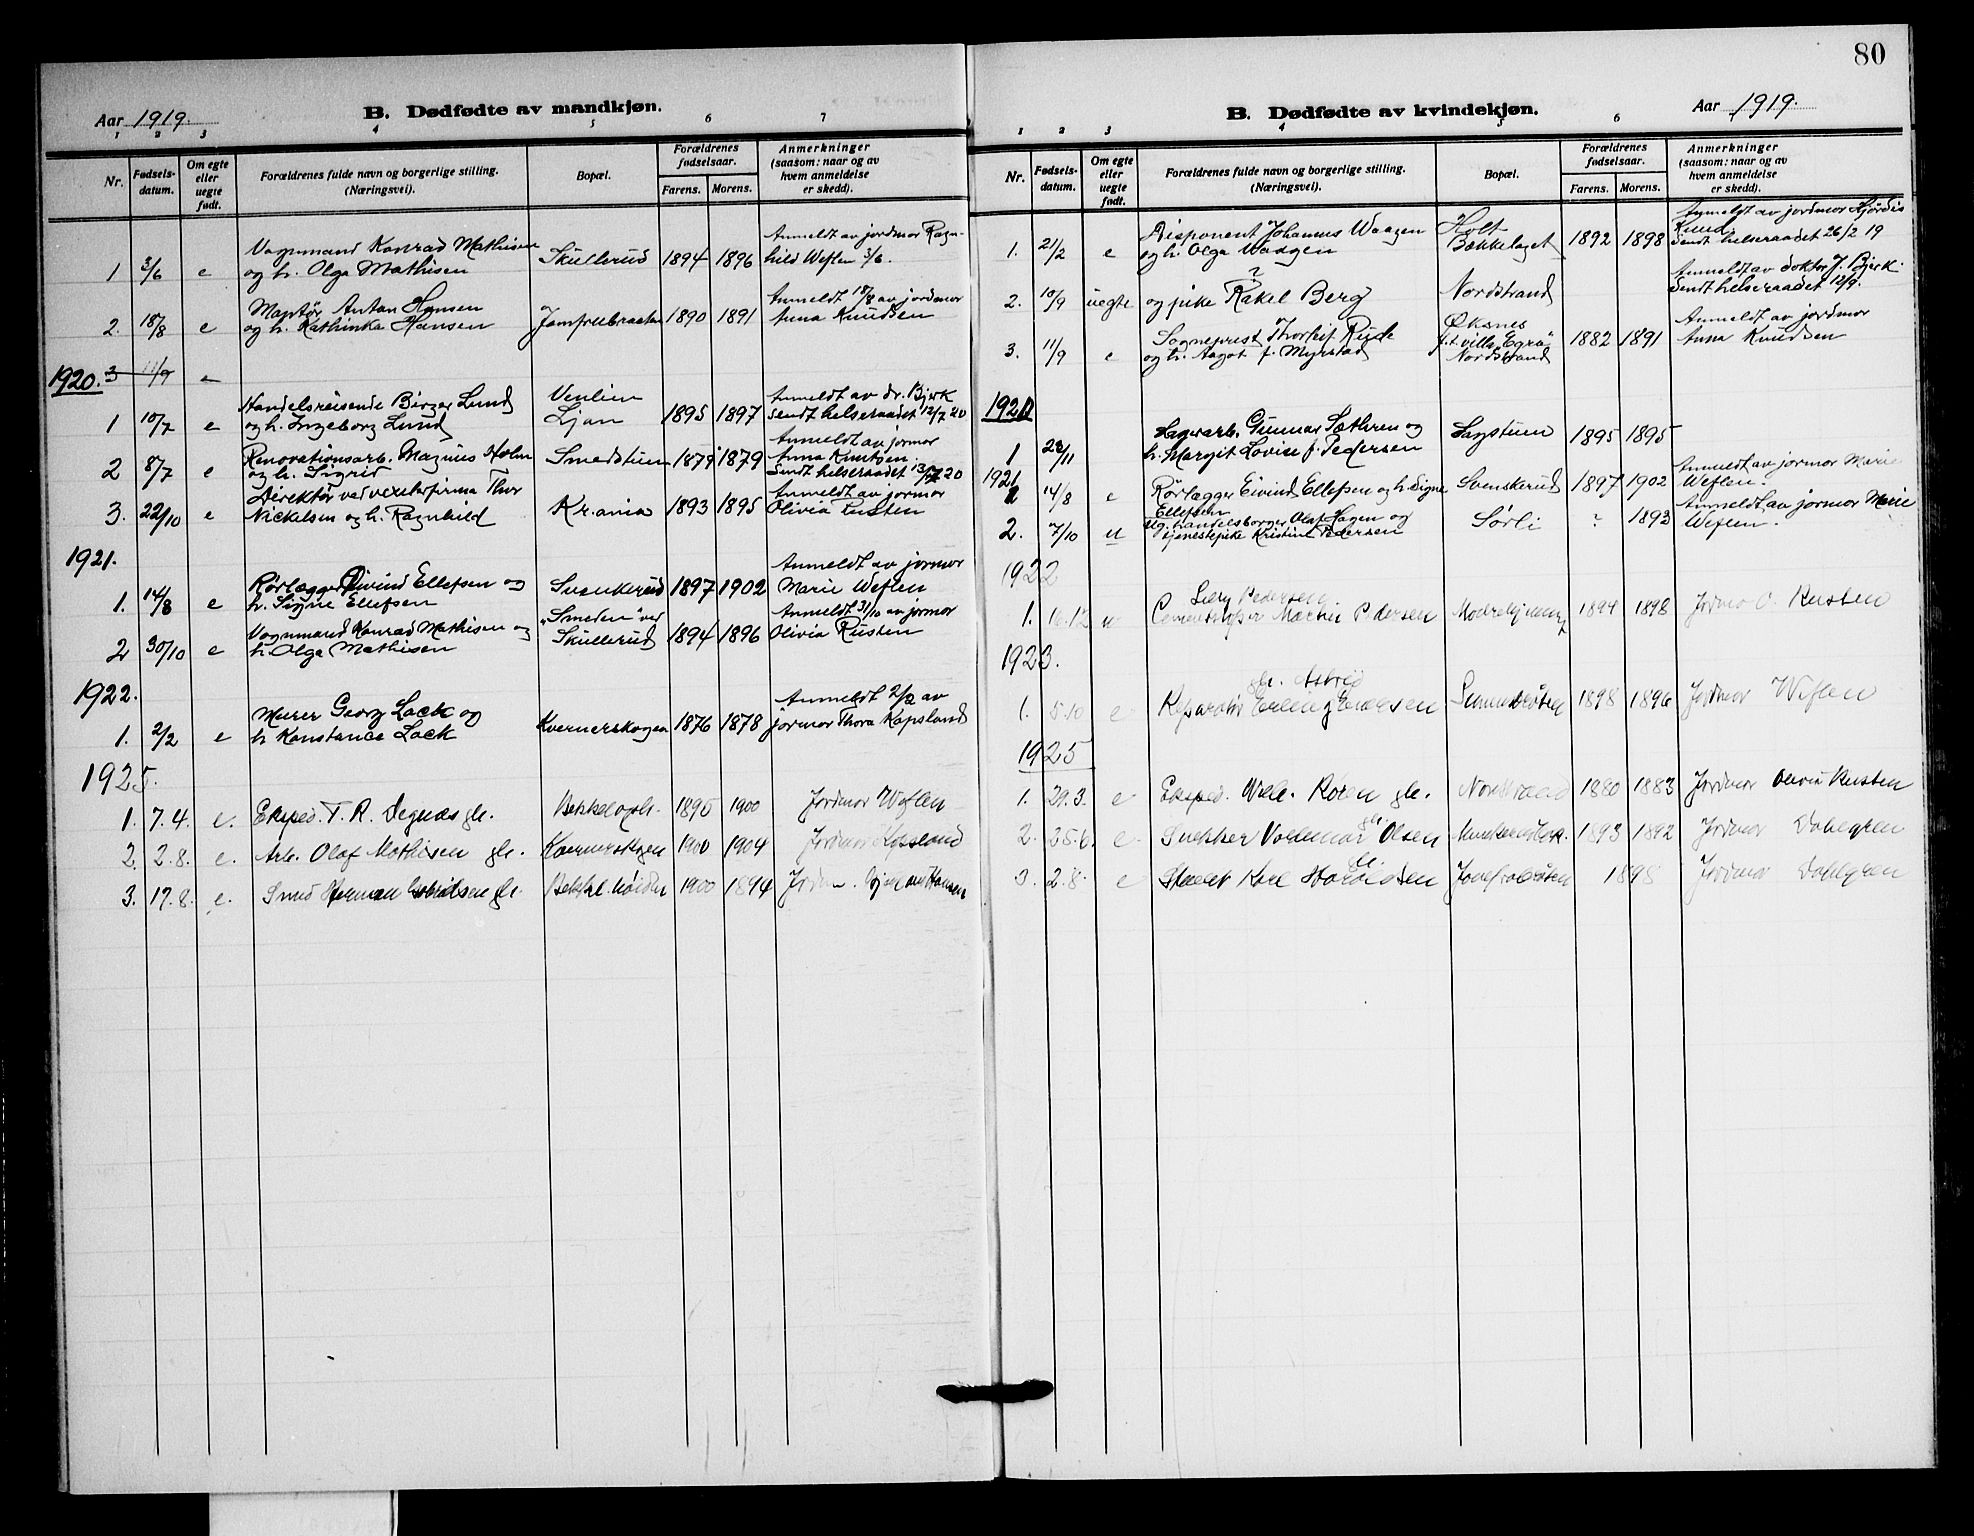 80
Aar 1919.
B. Dødfødte av mandkjøn.
1 2 3 4 5 6 7
Nr.
Fødsels-datum.
Om egte eller uegte født.
Forældrenes fulde navn og borgerlige stilling. (Næringsvei).
Bopæl.
Forældrenes fødselsaar.
Farens. Morens.
Anmerkninger (saasom: naar og av hvem anmeldelse er skedd).
Vognmand Konrad Mathisen Anmeldt av jordmor Ragn-
1 3/6 e og h. Olga Mathisen Skullerud 1894 1896 hild Weflen 3/6.
Anton Hansen Anmeldt 18/8 av jordmor
2. 18/8 e og h. Kathinka Hansen Jomfrubraaten 1890 1891 Anna Knudsen
1920. 3 11/9 e
Handelsreisende Birger Lund Venlien Anmeldt av dr. Bjerk
1 10/7 e og h. Ingeborg Lund Ljan 1895 1897 Sendt helseraadet 12/7 20
Renovationsarb. Magnus Holm Anmeldt av jormor
2 8/7 e og h. Sigrid Smedstuen 1879 1879 Anna Knutsen.
Sendt helseraadet 13/7 20
Direktør ved Thor Anmeldt av jormor
3. 22/10 e Nickelsen og h. Ragnhild Kr.ania 1893 1895 Olivia Rusten
1921.
Rørlægger Eivind Ellefsen og Anmeldt av jormor
1. 14/8 e h. Signe Ellefsen Svenskerud 1897 1902 Marie Weflen
Vognmand Konrad Mathisen og "Smeden" ved Anmeldt 31/10 av jormor
2 30/10 e h. Olga Mathisen Skullerud 1894 1896 Olivia Rusten
1922.
Murer Georg Lack og Anmeldt 2/2 av
1. 2/2 e h Konstance Lack Kvernerskogen 1876 1878 jormor Thora Kapsland
1925.
1. 7.4. e. Eksped. T. R. 1895 1900 Jordmor Weflen
2. 2.8. e. Arb. Olaf Mathisen Kvernerskogen 1900 1904 Jordmor Kapsland
3. 17.8. e. Smed Herman 1900 1894 Hansen
B. Dødfødte av kvindekjøn.
Aar 1919.
1 2 3 4 5 6
Nr.
Fødsels-datum.
Om egte eller uegte født.
Forældrenes fulde navn og borgerlige stilling. (Næringsvei).
Bopæl.
Forældrenes fødselsaar.
Farens. Morens.
Anmerkninger (saasom: naar og av hvem anmeldelse er skedd).
Disponent Johannes Waagen Holt Anmeldt av jordmor Hjørdis
1. 21/2 e og h. Olga Waagen Bækkelaget 1892 1898 Ruud.
Sendt helseraadet 26/2 19
? Anmeldt av doktor J. Bjerk.
2. 10/9 uegte og pike Rakel Berg Nordstrand Sendt helseraadet 12/9.
Sogneprest Thorleif Rude Øksnes Anmeldt av jordmor
3. 11/9 e og h. Aagot f. Myrstad f.t. villa "Egra" 1882 1891 Anna Knudsen
Nordstrand
1920
Lagerarb. Gunnar Sæthren og
1 28/11 h. Margit Lovise f. Pedersen Lagstuen 1895 1895
1921
Anmeldt av jormor Marie
1 14/8 e Rørlægger Eivind Ellefsen og h. Signe Svenskerud 1897 1902 Weflen.
Ellefsen
Ug. handelsborger Olaf Hagen og Anmeldt av jormor Marie
2. 7/10 u tjenestepike Kristine Pedersen Sørli ? 1893 Weflen.
1922
Pedersen
1. 16.12 Martin Pedersen 1894 1898 Jordmor O. Rusten
1923.
gh. Astrid
1. 5.10 e Reparatør Erling 1898 1896 Jordmor Weflen
1925
1. 29.3. e Eksped. Nordstrand 1880 1883 Jordmor Olivia Rusten
2. 25.6. e Snekker Valdemar Olsen 1893 1892 Jordmor Dahlgren
3. 2.8. e Karl Haraldsen Jomfrubråten 1898 Jordmor Dahlgren